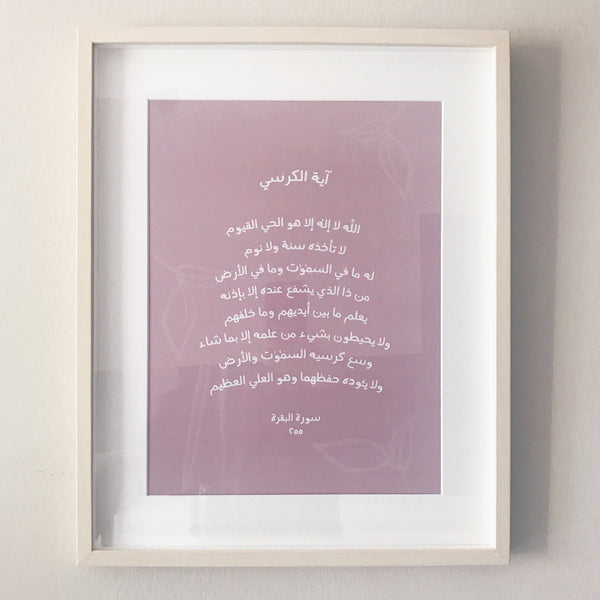 آية الكرسي
الله لا إله إلا هو الحي القيوم
لا تأخذه سنة ولا نوم
له ما في السمٰوٰت وما في الأرض
من ذا الذي يشفع عنده إلا بإذنه
يعلم ما بين أيديهم وما خلفهم
ولا يحيطون بشيء من علمه إلا بما شاء
وسع كرسيه السمٰوٰت والأرض
ولا يئوده حفظهما وهو العلي العظيم
سورة البقرة
٢٥٥